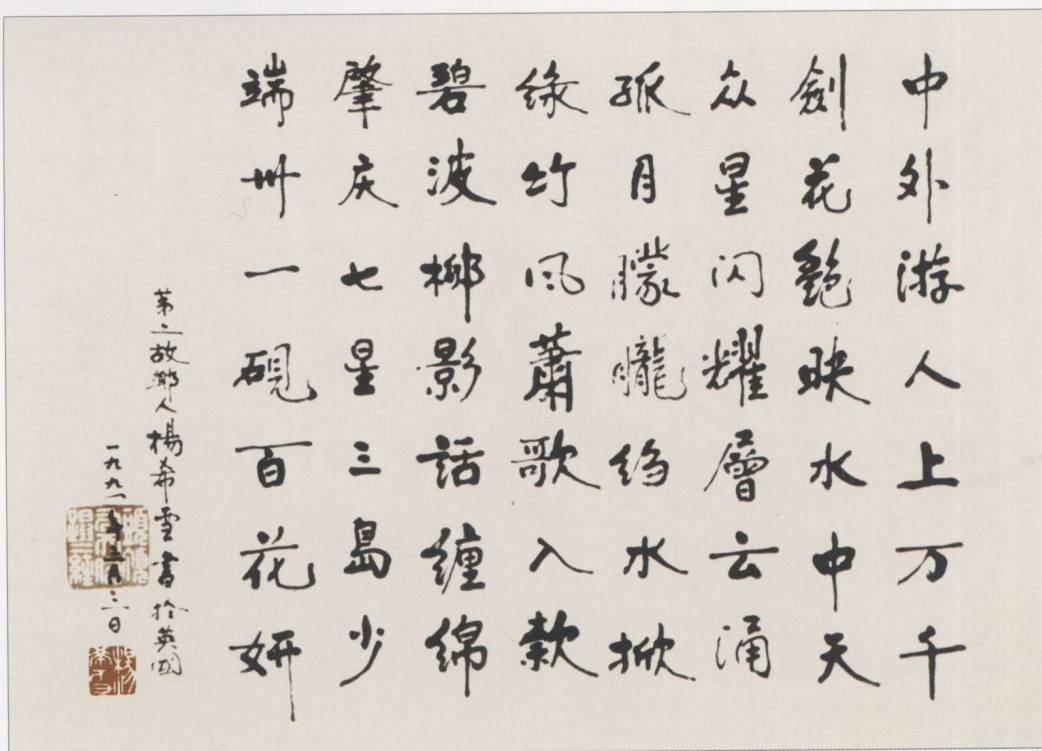 中外游人上万千
劍花艷映水中天
众星闪耀層云涌
孤月朦朧绉水掀
绿竹风蕭歌入款
碧波椰影話缠绵
肇庆七星三島少
端州一硯百花妍
第二故鄉人楊希雪書於英國
一九九一年三月二日